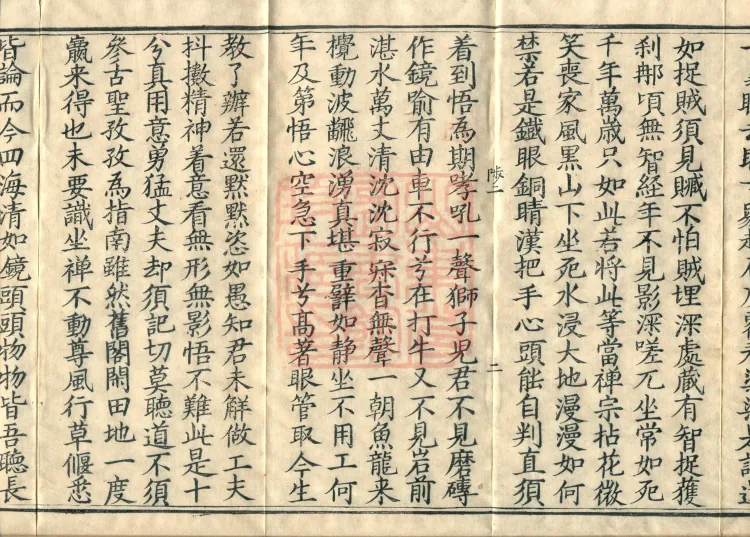 如捉賊須見贓不怕賊埋深處藏有智捉獲
刹那頃無智經年不見影深嗟兀坐常如死
千年萬歲只如此若將此等當禅宗拈花微
笑喪家風黑山下坐死水浸大地漫漫如何
禁若是鐵眼銅睛漢把手心頭能自判直須
陟二
二
着到悟為期哮吼一聲獅子兒君不見磨磚
作鏡喻有由車不行兮在打牛又不見岩前
湛水萬丈清沈沈寂寂杳無聲一朝魚龍来
攪動波飜浪湧真堪重譬如静坐不用工何
年及第悟心空急下手兮高著眼管取今生
教了辦若還默默恣如愚知君未解做工夫
抖擻精神着意看無形無影悟不難此是十
兮真用意勇猛丈夫却須記切莫聽道不須
參古聖孜孜為指南雖然舊閣閑田地一度
贏来得也未要識坐禅不動尊風行草偃悉
皆論而今四海清如鏡頭頭物物皆吾聽長